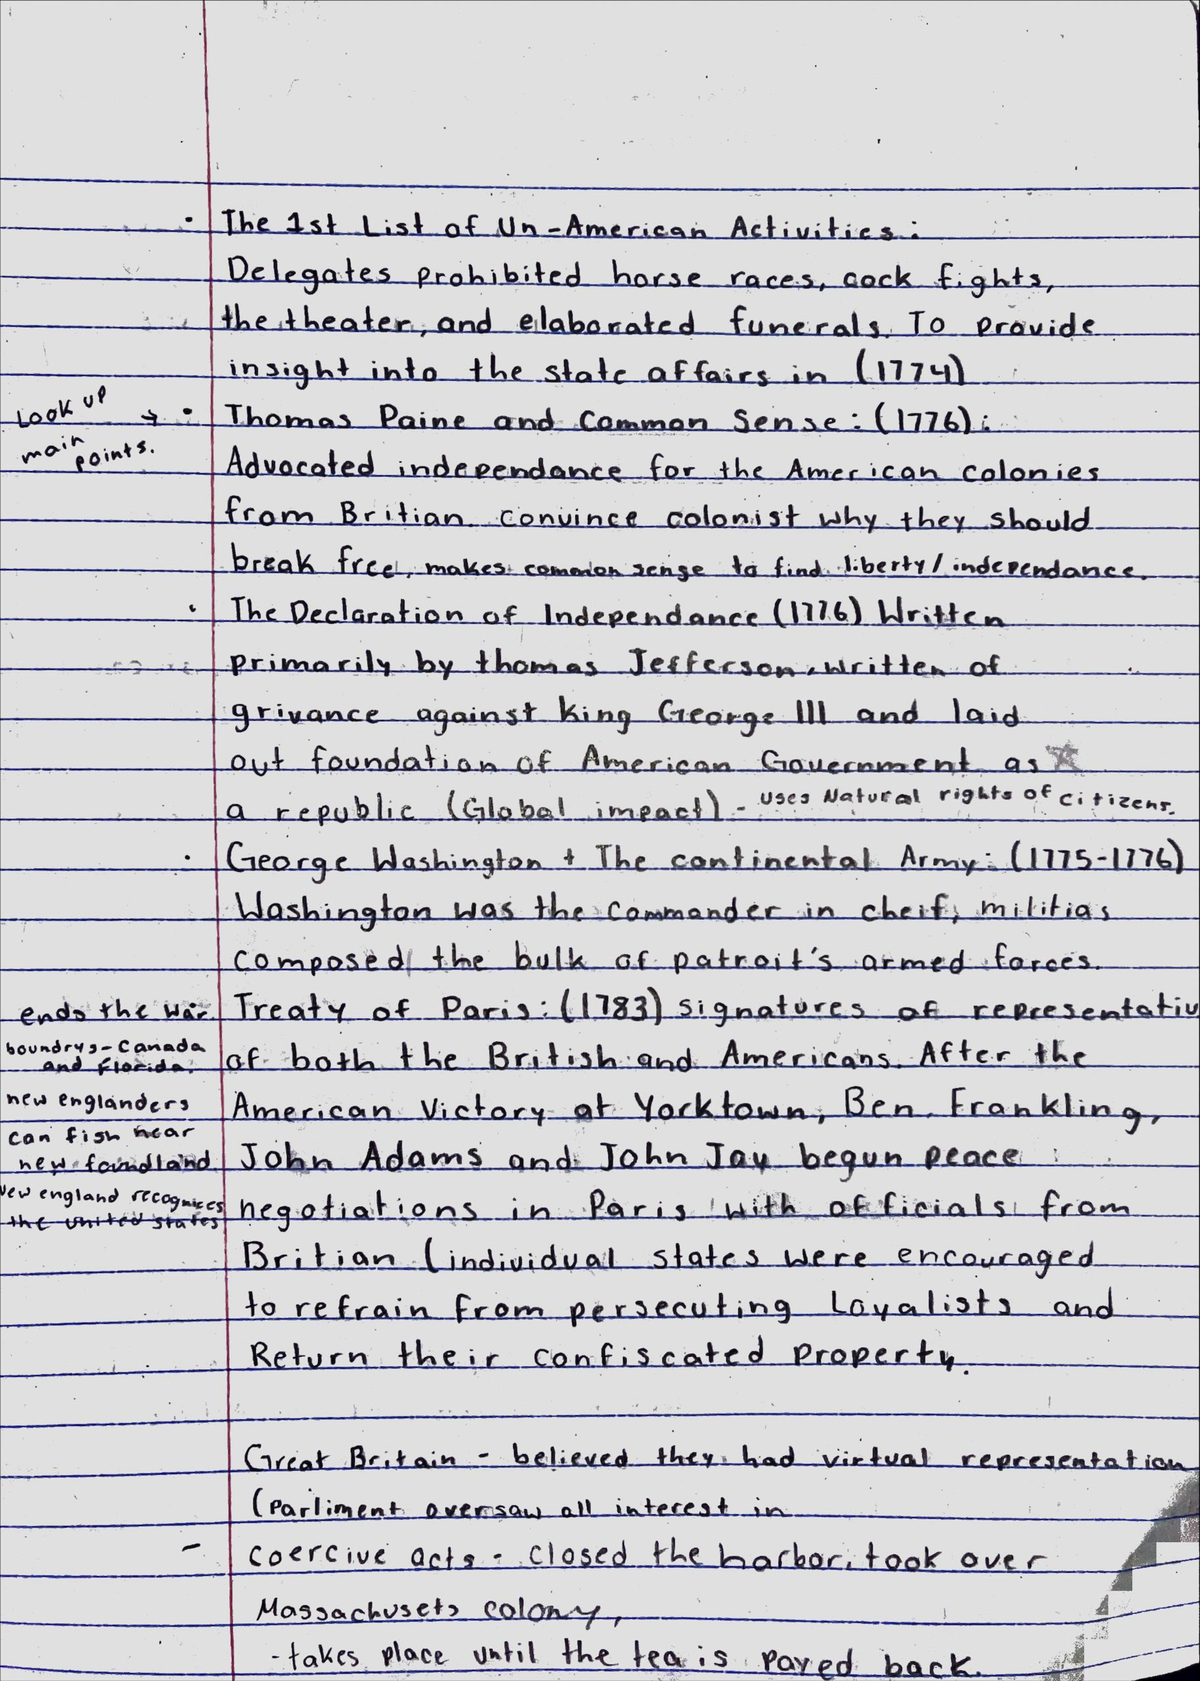 • The 1st List of Un-American Activities:
Delegates prohibited horse races, cock fights,
the theater, and elaborated funerals. To provide
insight into the state affairs in (1774)
Look up
main
points.
→ • Thomas Paine and Common Sense: (1776):
Advocated independance for the American colonies
from Britian convince colonist why they should
break free, makes common sense to find liberty/independance.
• The Declaration of Independance (1776) Written
primarily by thomas Jefferson, written of
grivance against king George III and laid
out foundation of American Government as ☆
a republic (Global impact) - uses Natural rights of citizens.
• George Washington + The continental Army: (1775-1776)
Washington was the commander in cheif, militias
composed the bulk of patroit's armed forces.
ends the war.
boundrys-Canada
and Florida.
new englanders
can fish near
new foundland
New england recognizes
the united states
Treaty of Paris: (1783) signatures of representativ
of both the British and Americans. After the
American Victory at Yorktown, Ben. Frankling,
John Adams and John Jay begun peace
negotiations in Paris with officials from
Britian (individual states were encouraged
to refrain from persecuting Loyalists and
Return their confiscated property.
Great Britain - believed they had virtual representation
(Parliment oversaw all interest in
- coercive acts - closed the harbor, took over
Massachusets colony,
- takes place until the tea is payed back.